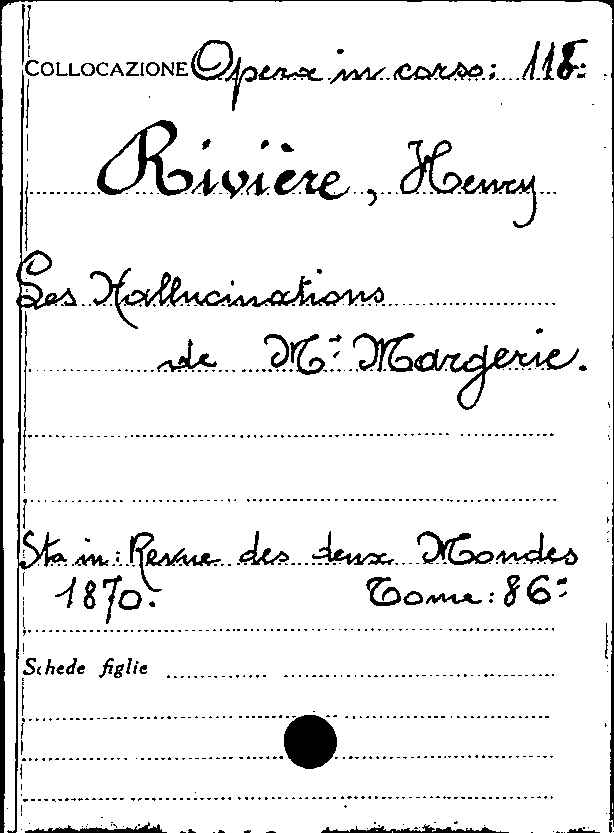 COLLOCAZIONE Opera in corso: 118:
Rivière, Henry
Les Hallucinations
de Mr: Margerie.
Sta in: Revue des deux Mondes
1870. Tome: 86:
Schede figlie